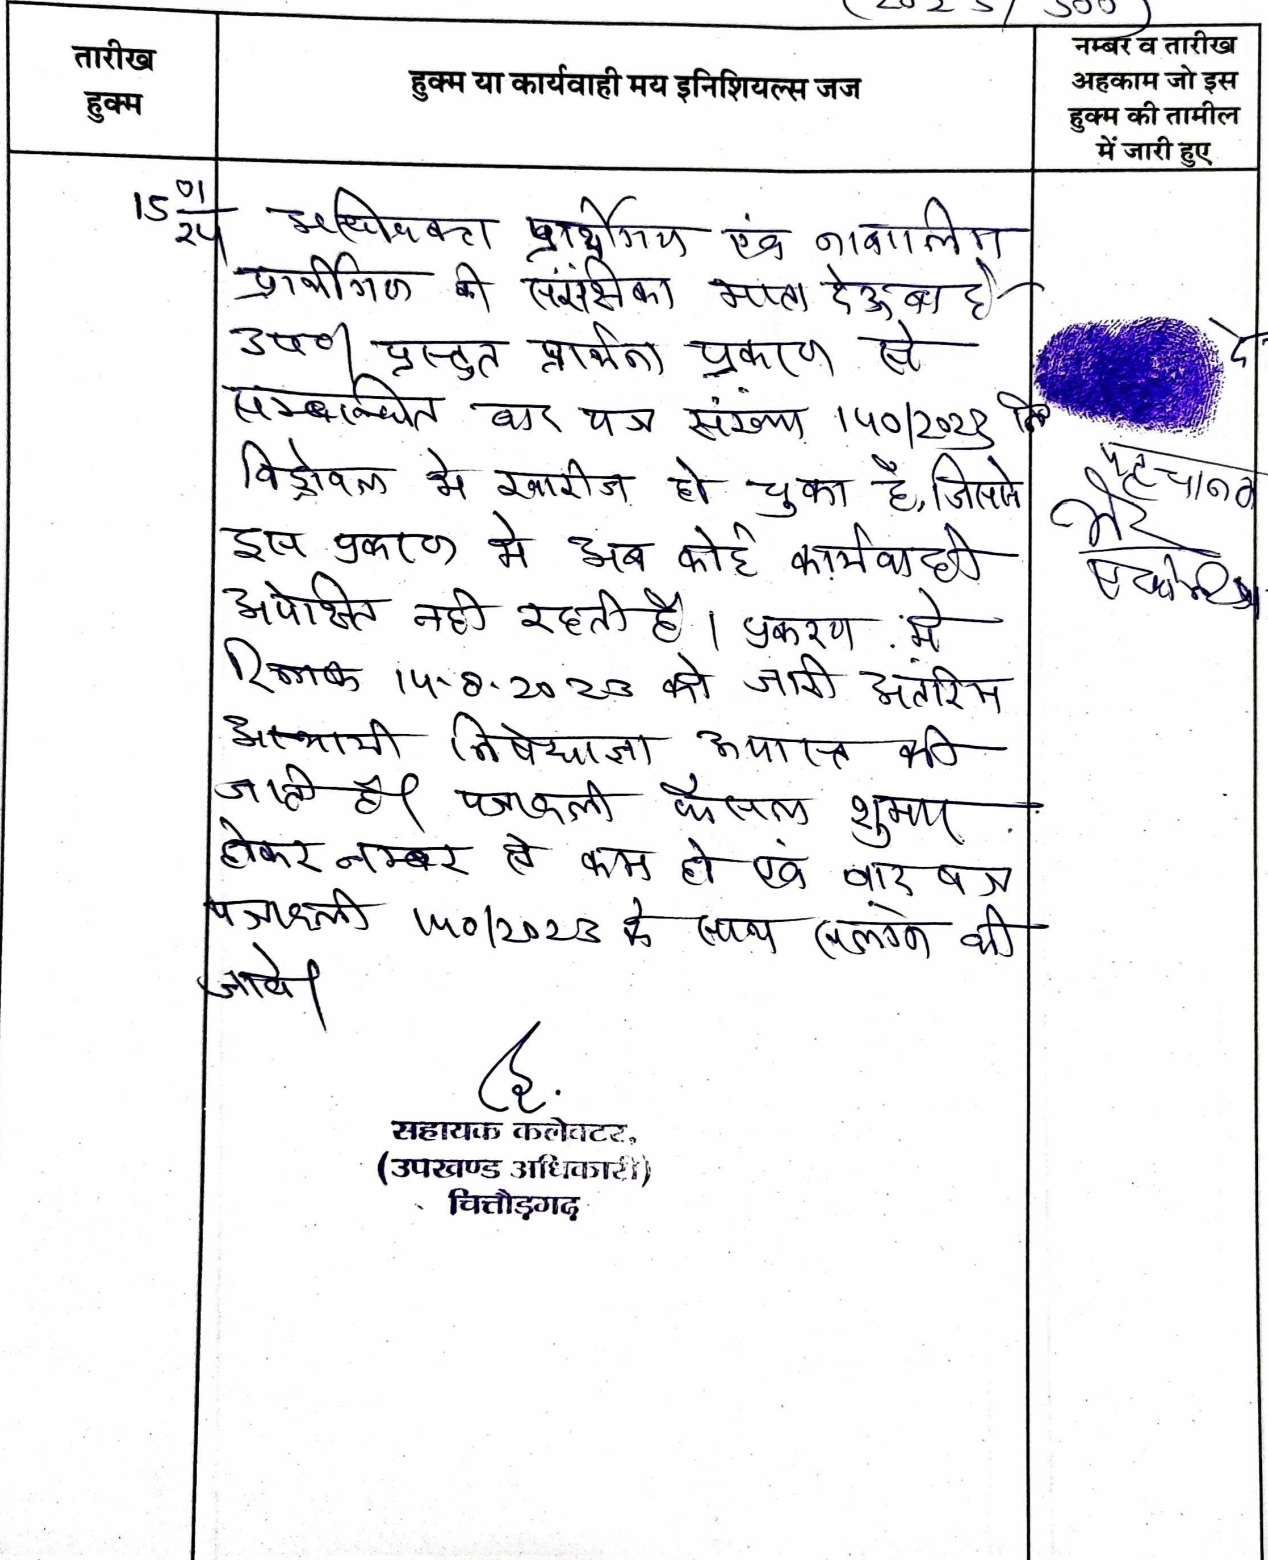 (2023/300)
तारीख
हुक्म
हुक्म या कार्यवाही मय इनिशियल्स जज
नम्बर व तारीख
अहकाम जो इस
हुक्म की तामील
में जारी हुए
15/01/24
अधिवक्ता प्रार्थीगण एवं नाबालिग
प्रार्थीगण की संरक्षिका माता देऊ बाई
उप0। प्रस्तुत प्रार्थना प्रकरण से
सम्बन्धित वाद पत्र संख्या 140/2023
विड्रोवल मे खारीज हो चुका है, जिससे
इस प्रकरण मे अब कोई कार्यवाही
अपेक्षित नही रहती है। प्रकरण मे
दिनांक 14.8.2023 को जारी अंतरिम
अस्थायी निषेधाज्ञा अपास्त की
जाती है। पत्रावली फैसल शुमार
होकर नम्बर से कम हो एवं वाद पत्र
पत्रावली 140/2023 के साथ संलग्न की
जावे।
पहचानकर्ता
सहायक कलेक्टर,
(उपखण्ड अधिकारी)
चित्तौड़गढ़